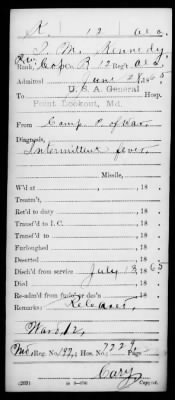 K. 12 Ala.
J. M. Kennedy
Rank, Corp. B 12 Reg't Ala.
Admitted June 28, 1865
To U. S. A. General Hosp.
Point Lookout, Md.
From Camp P. of War
Diagnosis,
Intermittent fever.
Missile,
W'd at , 18 .
Treatm't,
Ret'd to duty , 18 .
Transf'd to I. C. , 18 .
Transf'd to , 18 .
Furloughed , 18 .
Deserted , 18 .
Disch'd from service July 13, 1865
Died , 18 .
Re-adm'd from furlo' or des'n , 18 .
Remarks: Released.
Ward 12,
Md. Reg. No. 192; Hos. No. 7229; Page
Cary
Copyist.